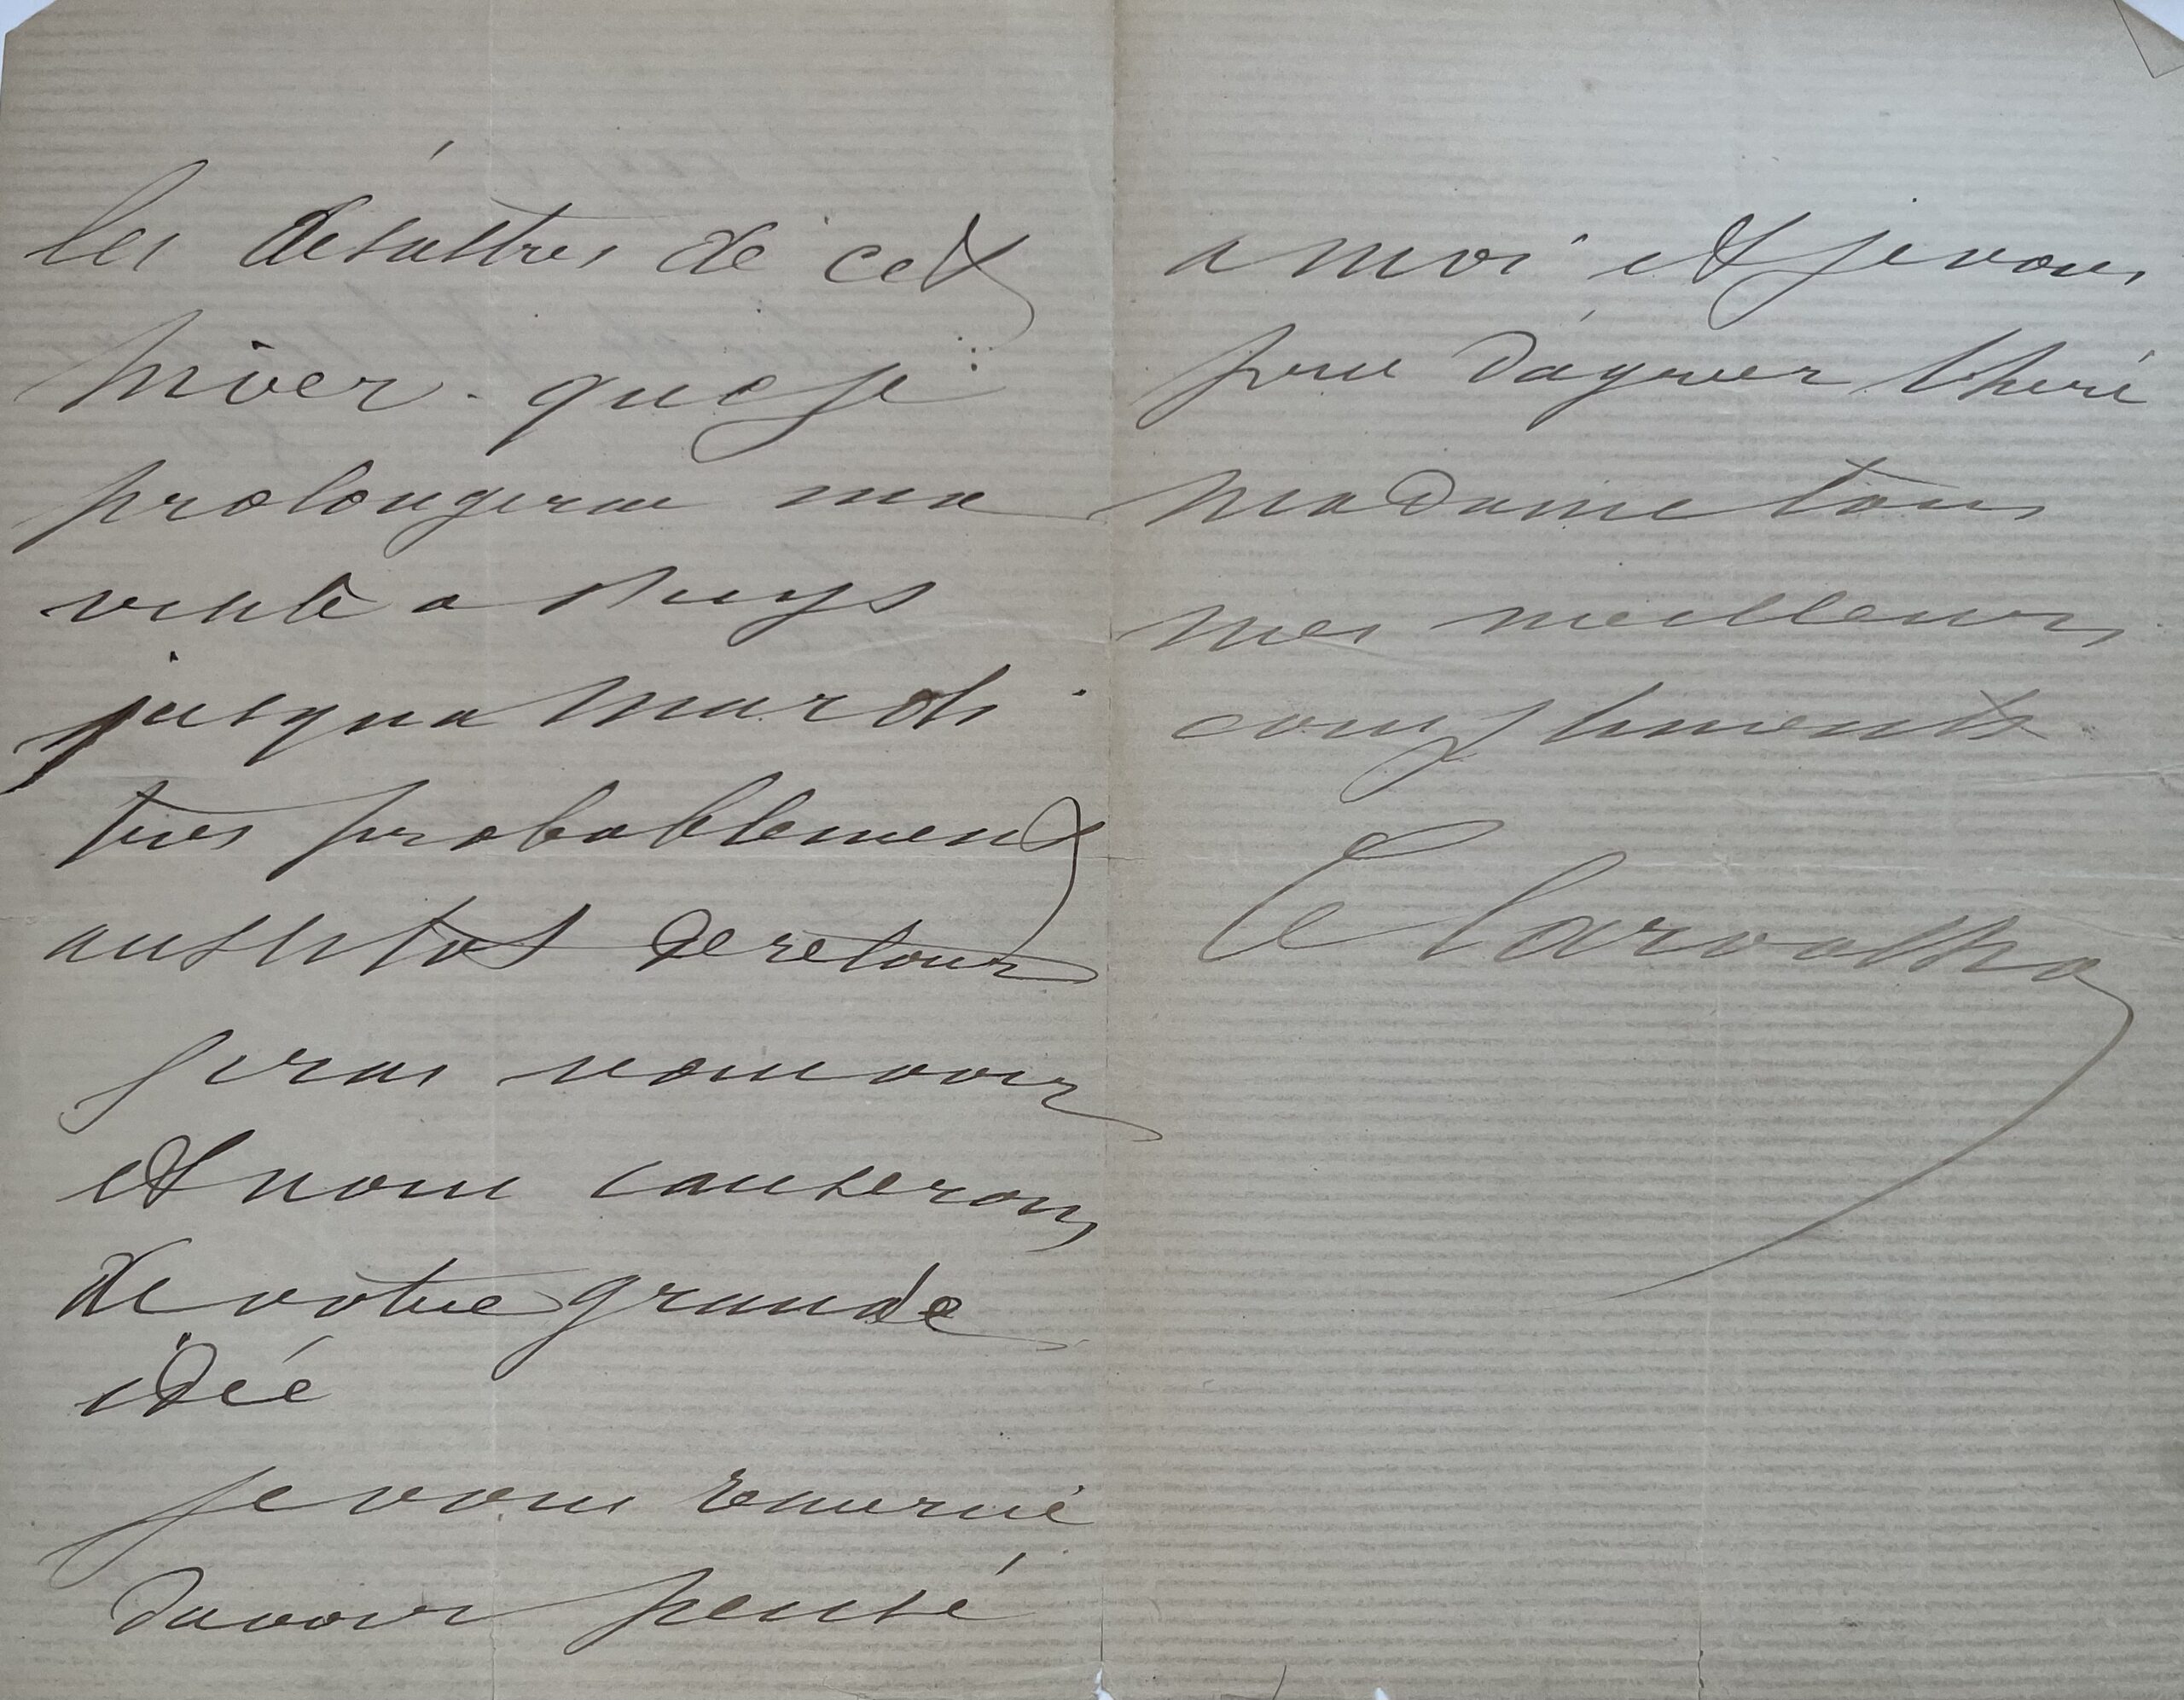 les désastres de cet
hiver. que je
prolongerai ma
visite a Puys
jusqua mardi
tres probablement
aussitot de retour
j'irai vous voir
et nous causerons
de votre grande
idée
je vous remercie
davoir pensé
a moi et je vous
prie d'agréer chère
madame tous
mes meilleurs
compliments
Carvalho